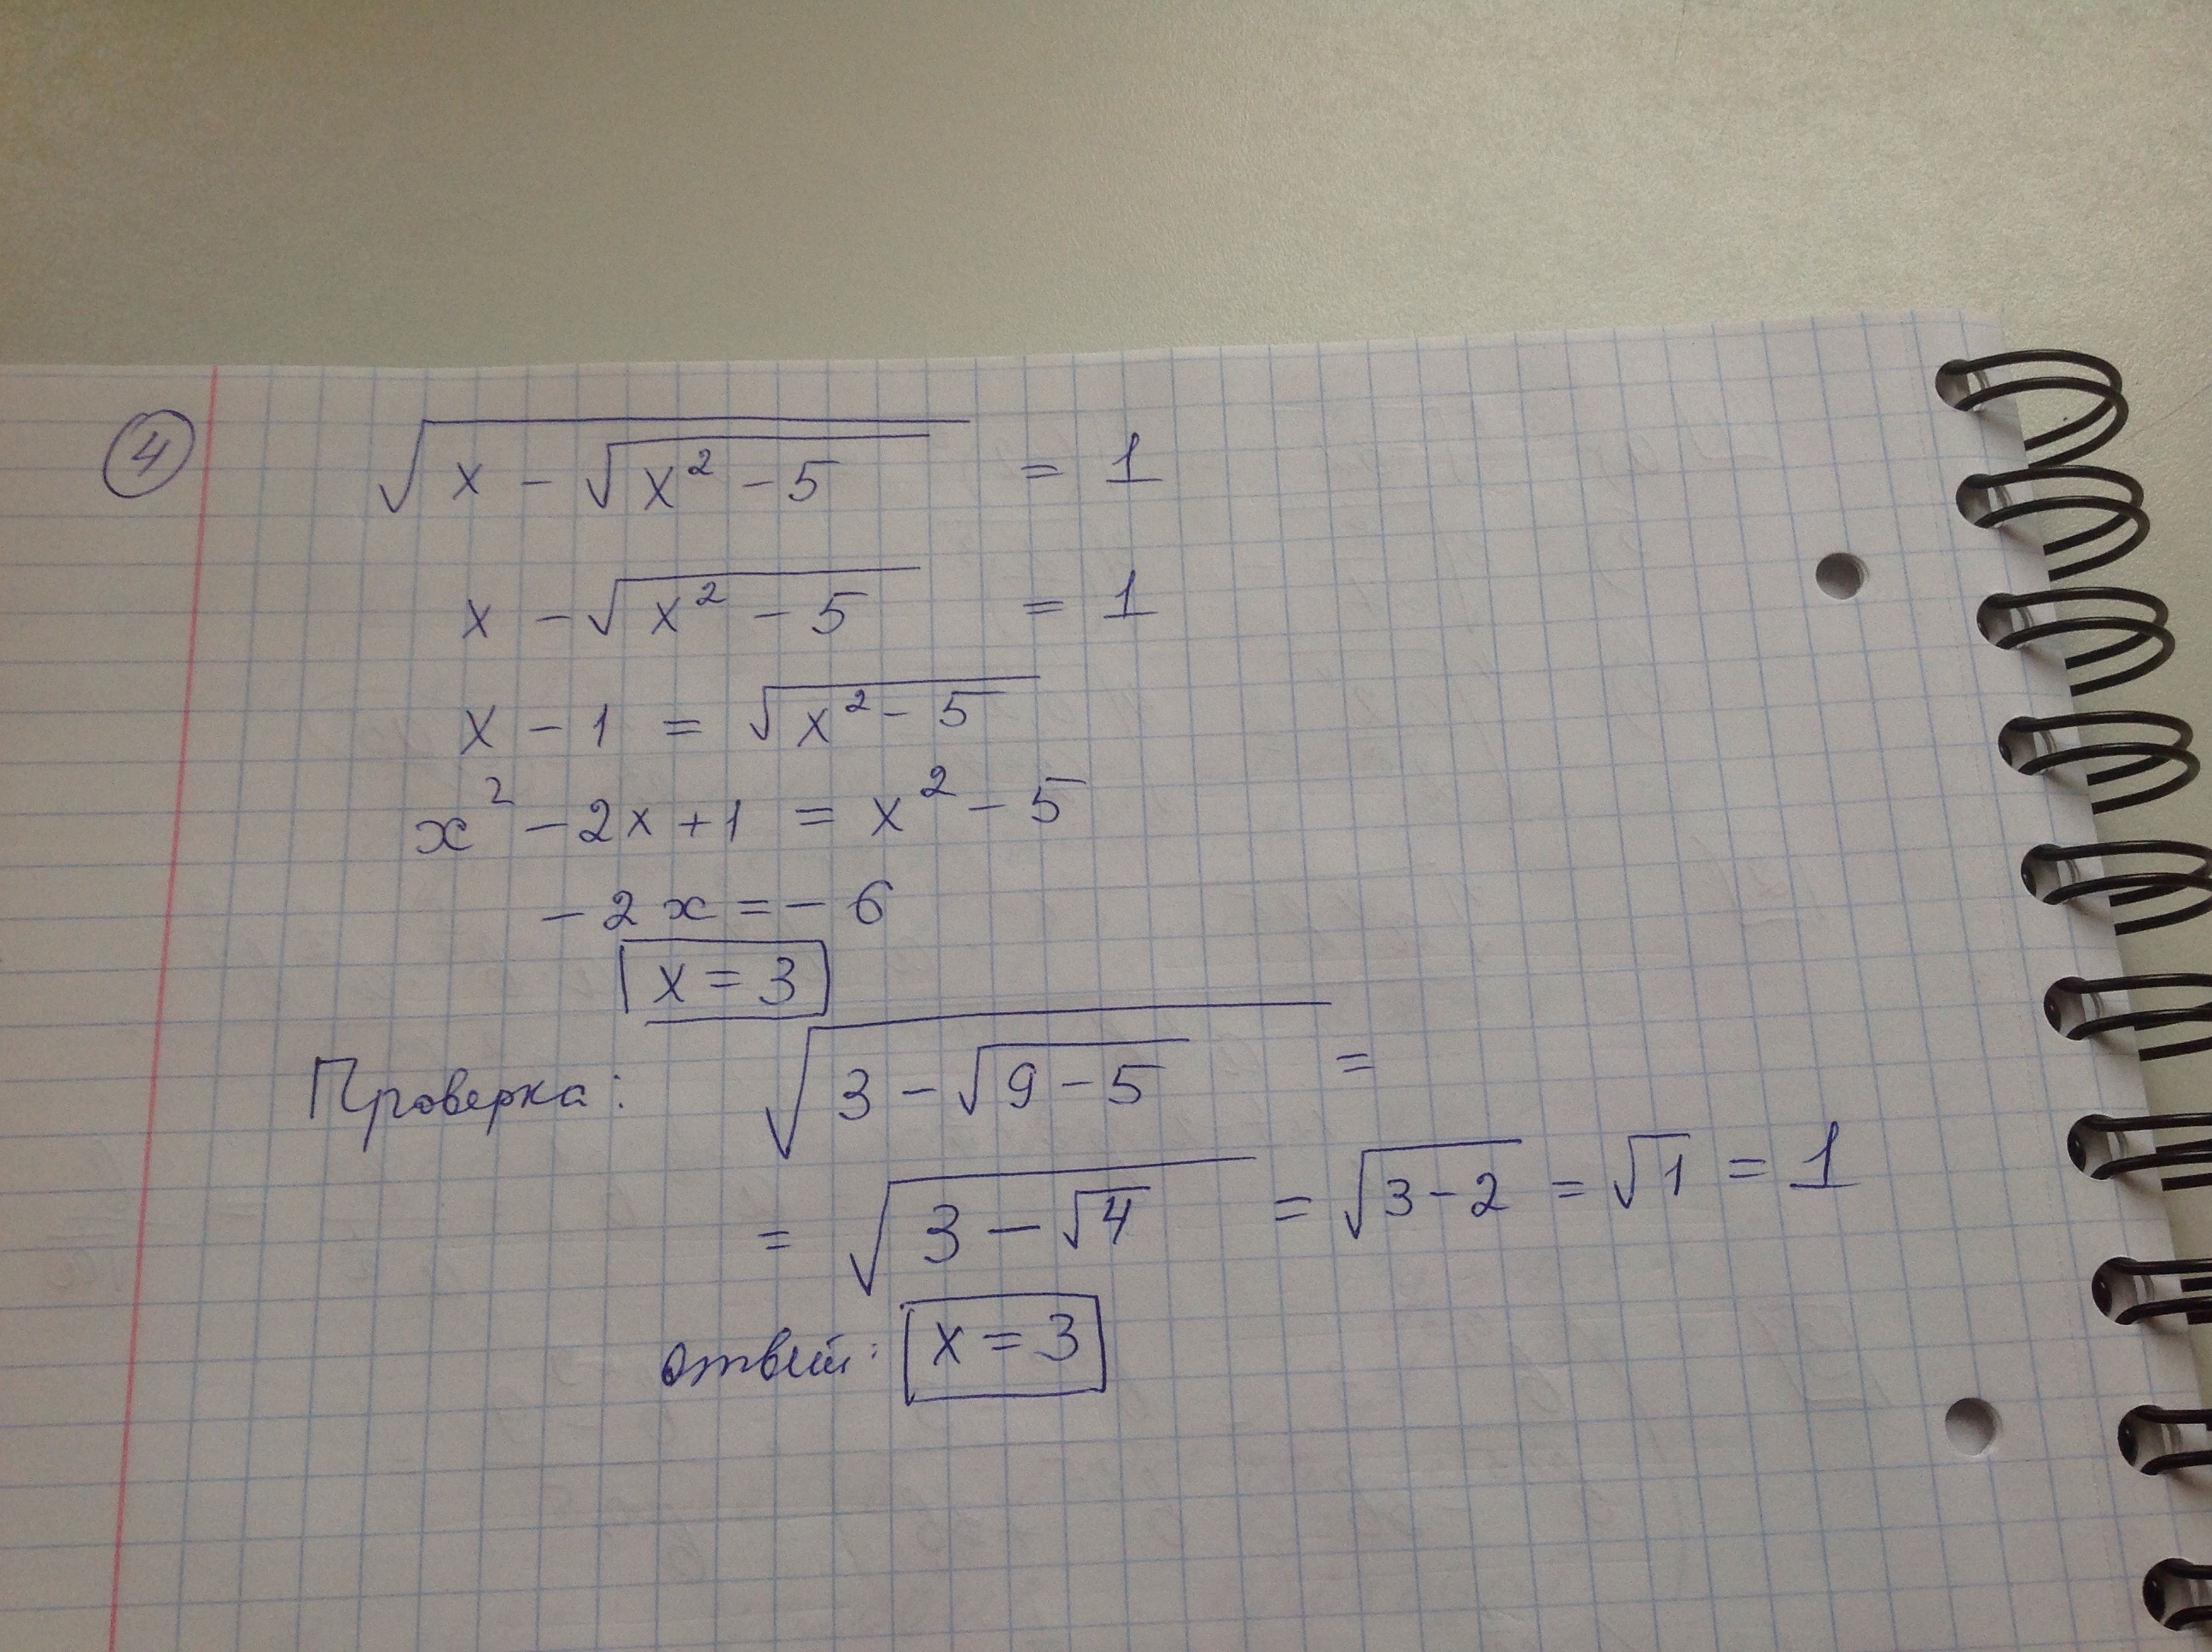 ④ √(x - √(x² - 5)) = 1
x - √(x² - 5) = 1
x - 1 = √(x² - 5)
x² - 2x + 1 = x² - 5
- 2x = - 6
x = 3
Проверка: √(3 - √(9 - 5)) =
= √(3 - √4) = √(3 - 2) = √1 = 1
ответ: x = 3